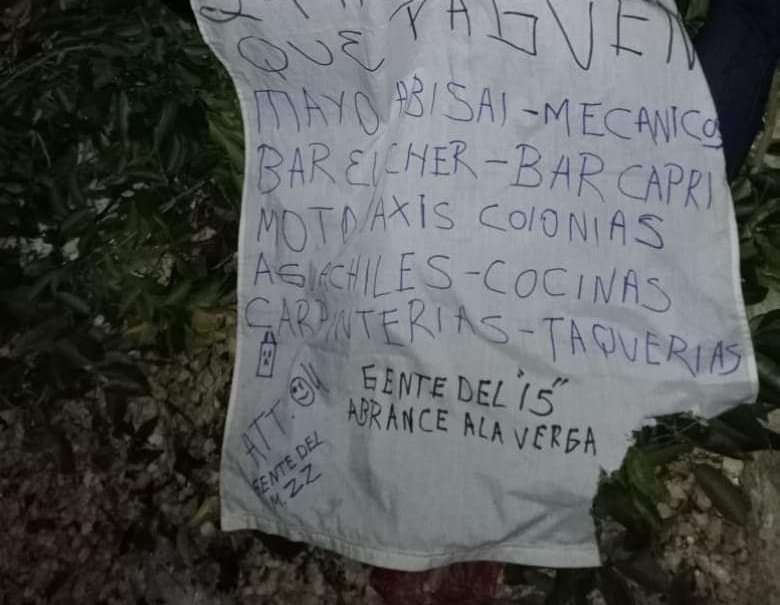 QUE PAGUEN
MAYO ABISAI - MECANICOS
BAR EICHER - BAR CAPRI
MOTOTAXIS COLONIAS
AGUACHILES - COCINAS
CARPINTERIAS - TAQUERIAS
GENTE DEL "15"
ABRANCE A LA VERGA
ATT.
GENTE DEL
M. ZZ